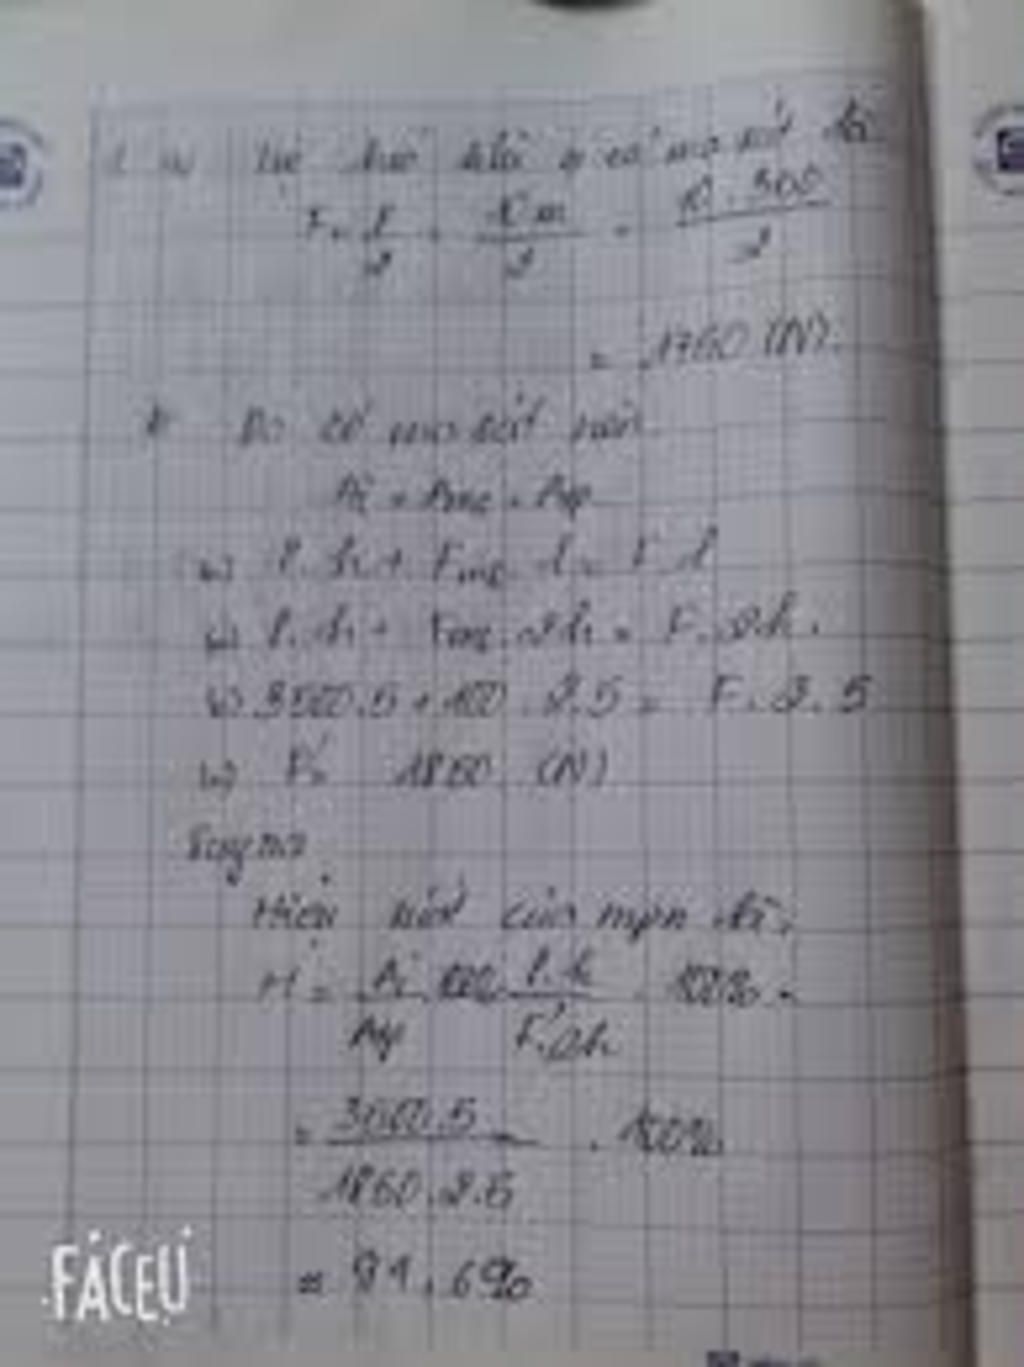 F = P/2 = 10m/2 = 10.300/2
= 1760 (N).
Do có ma sát nên
Ai + Ams = Atp
P.h + Fms.l = F.l
P.h + Fms.2h = F.2h.
3500.5 + 100.2.5 = F.2.5
F = 1850 (N)
Suy ra
Hiệu suất của mpn là:
H = Ai/Atp .100% = P.h/F.2h . 100% =
= 3500.5/1850.2.5 . 100%
= 94,6%
FACEU